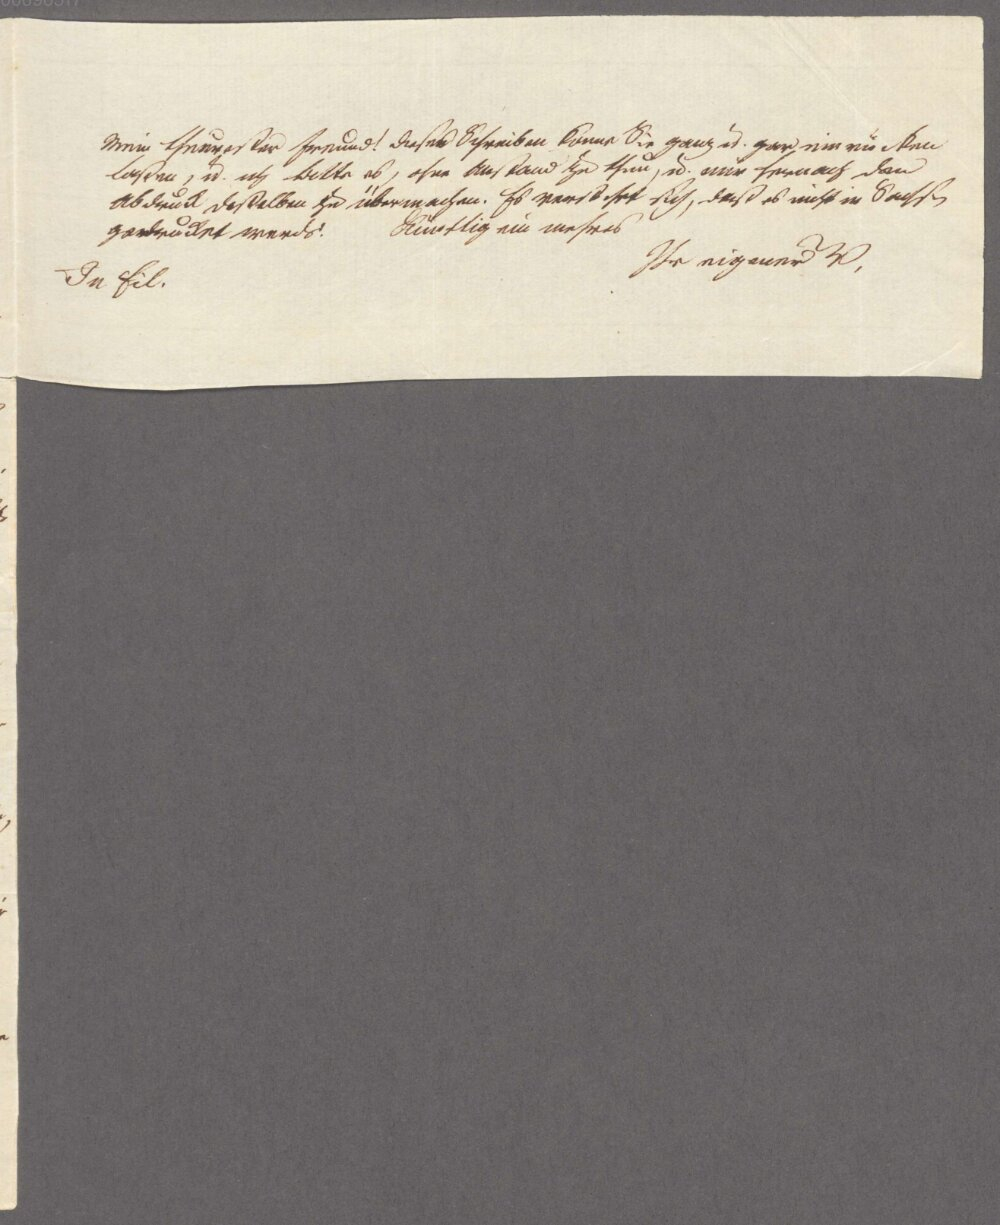 Mein theuerster Freund! dieses Schreiben könne Sie ganz u. gar einrücken
laßen, u. ich bitte es, ohne Anstand zu thun, u. mir hernach den
Abdruck deßelben zu übermachen. Es versteht sich, daß es nicht in Sachsen
gedrucket werde. Künftig ein mehres
Ihr eigener V.
In Eil.